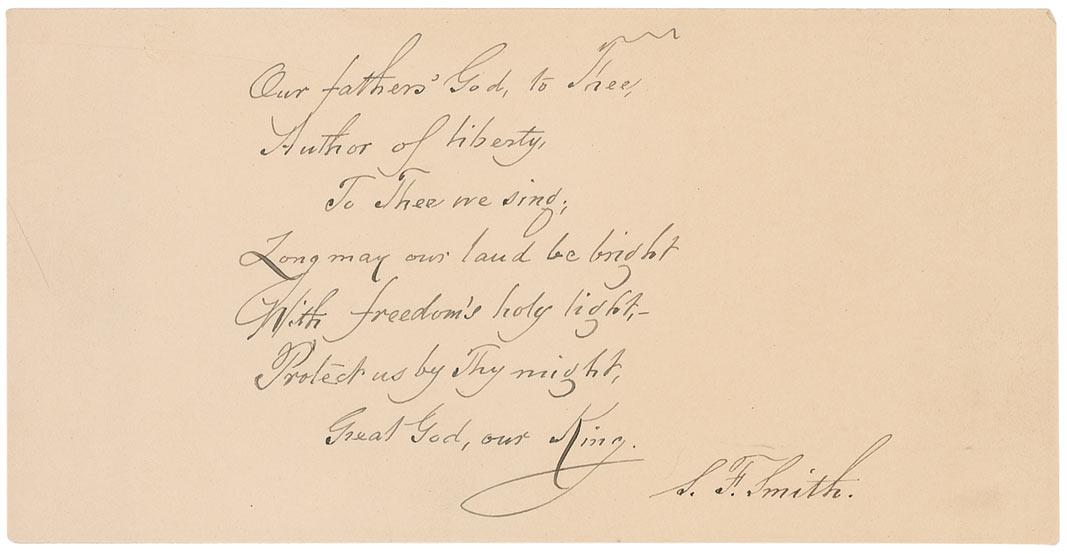 Our fathers' God, to Thee,
Author of liberty,
To Thee we sing;
Long may our land be bright
With freedom's holy light,–
Protect us by Thy might,
Great God, our King.
S. F. Smith.